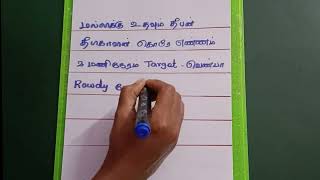 மல்லாக்கு உதவும் தீபன்
தீபாகரன் கொரே எண்ணம்
2 மணிநேரம் Target - வெண்பா
Rowdy